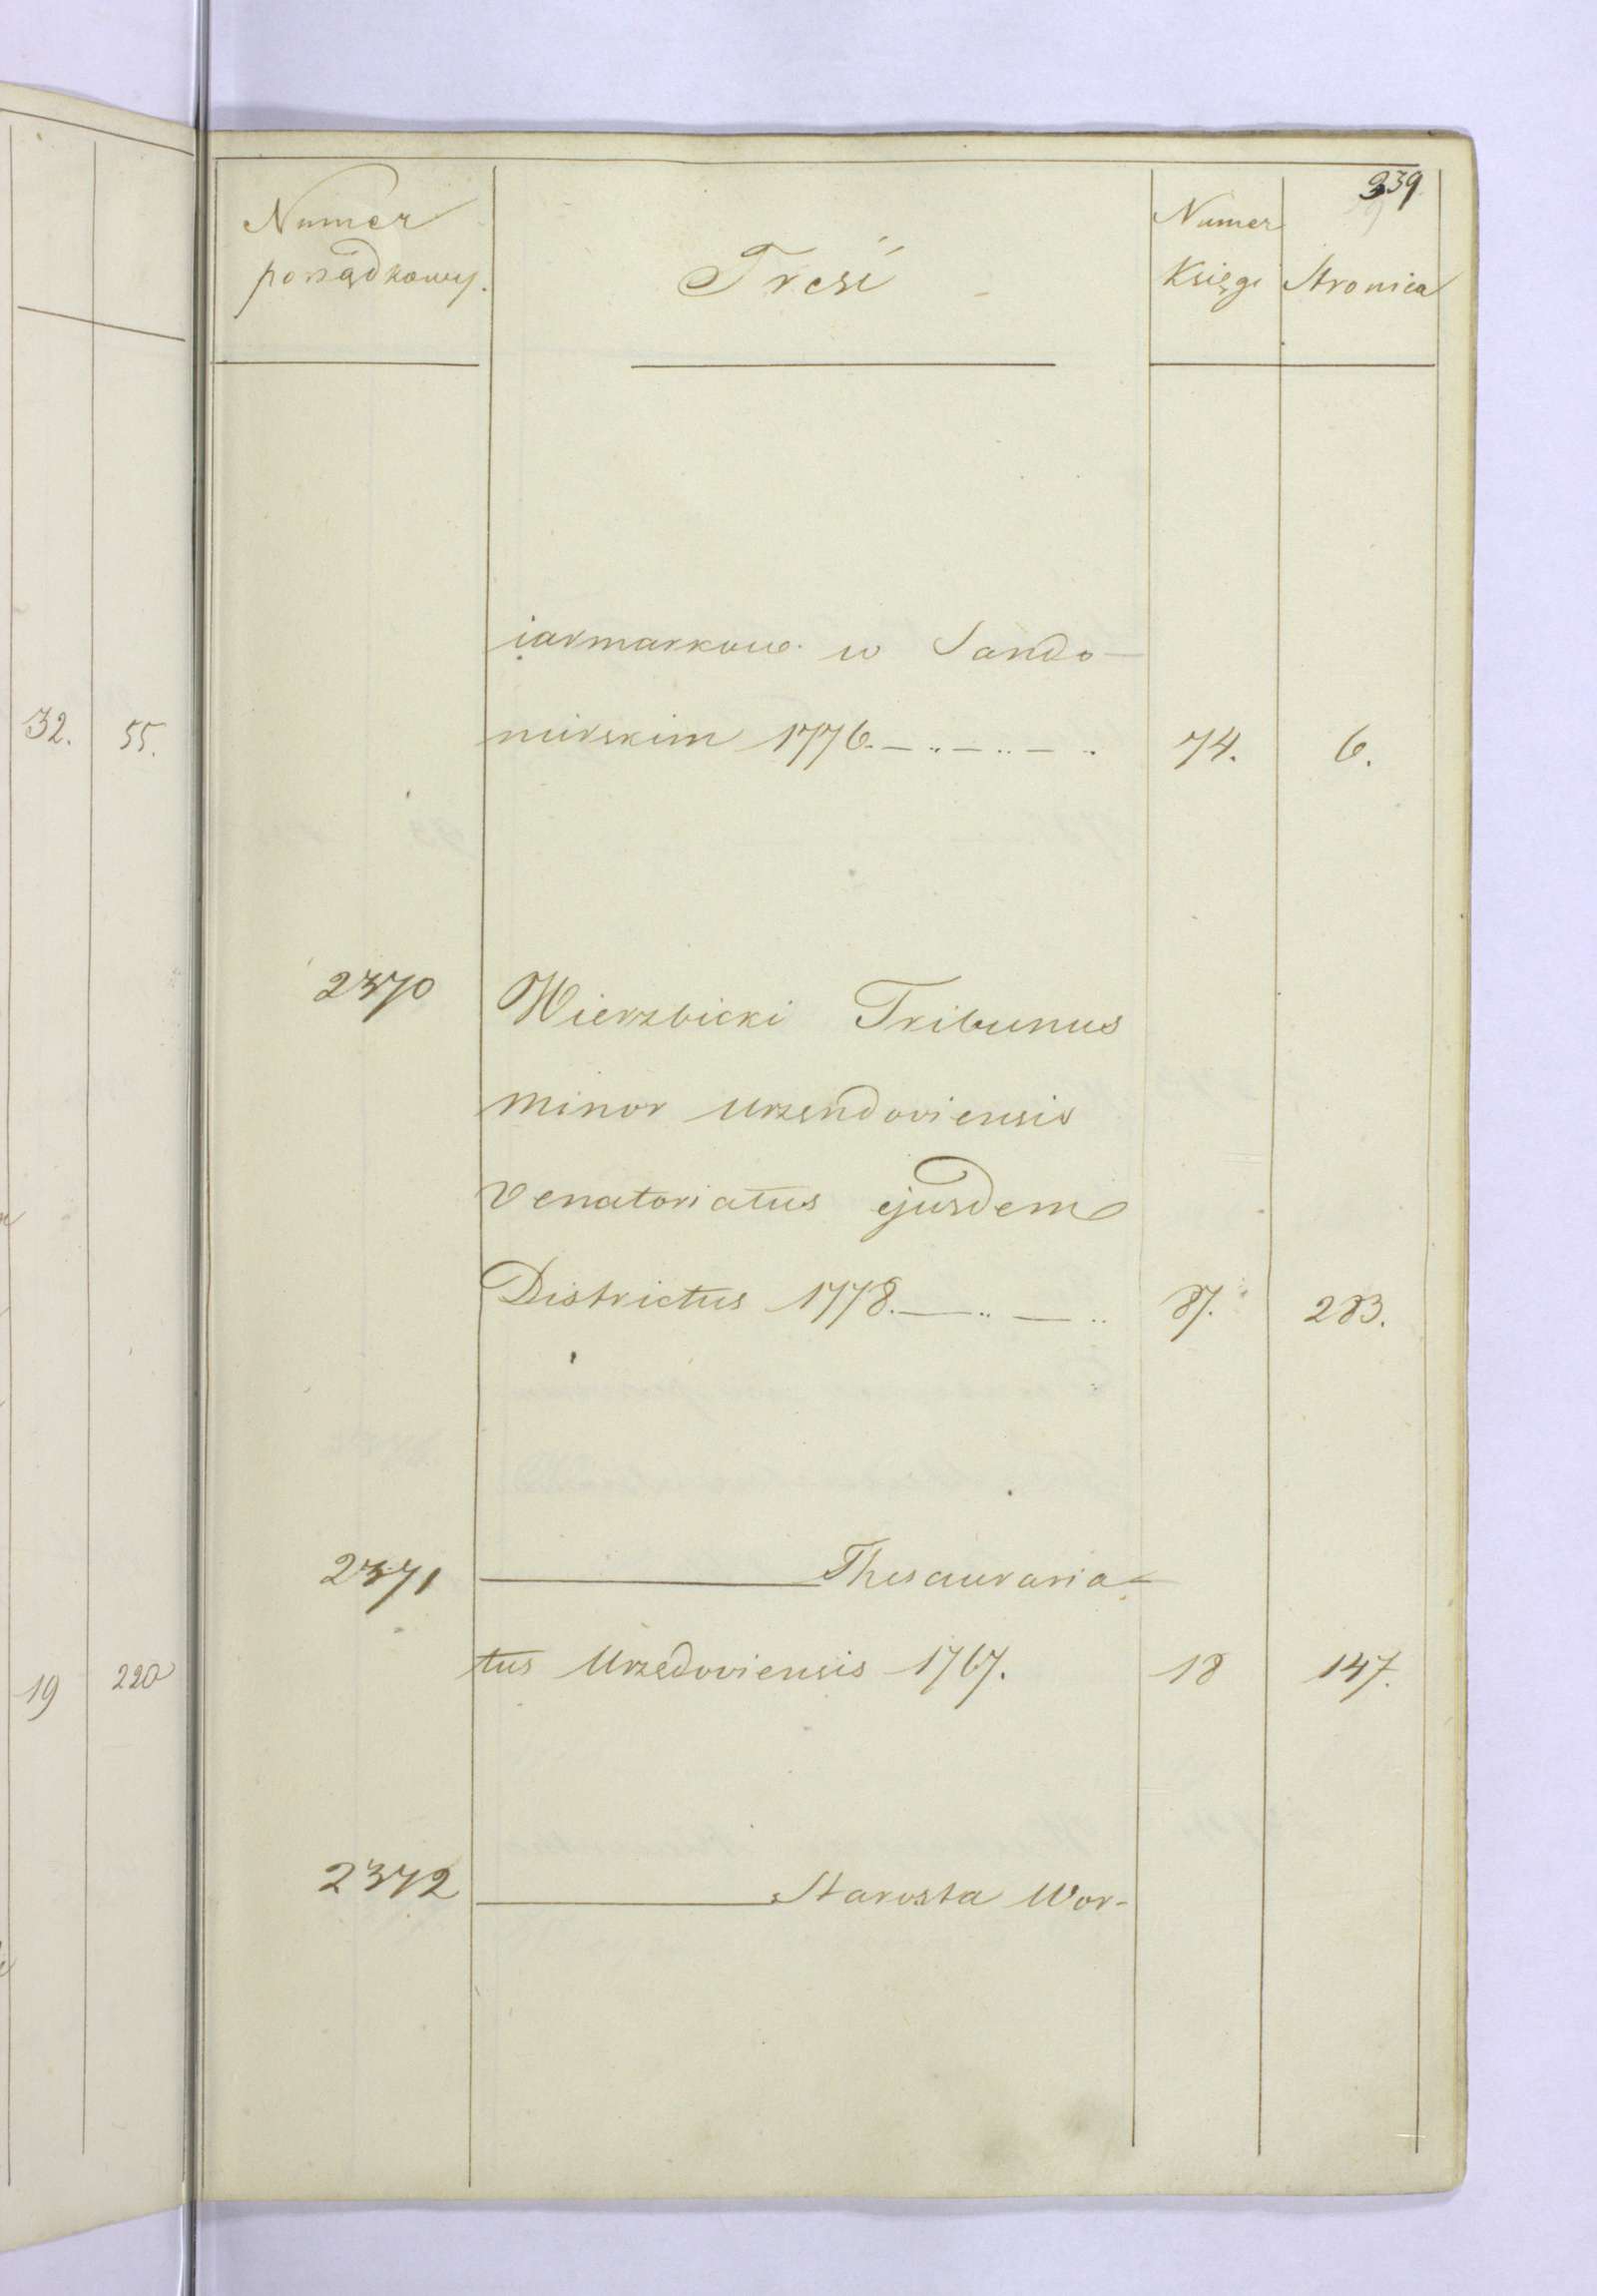 339
Numer porządkowy. Treść Numer Księgi Stronica
iarmarkow. w Sando-
32. 55. mirskim 1776. 74. 6.
2370 Wierzbicki Tribunus
minor Urzendoviensis
Venatoriatus ejusdem
Districtus 1778. 87. 283.
2371 Thesauraria-
19 220 tus Urzedoviensis 1767. 18 147.
2372 Starosta Wor-